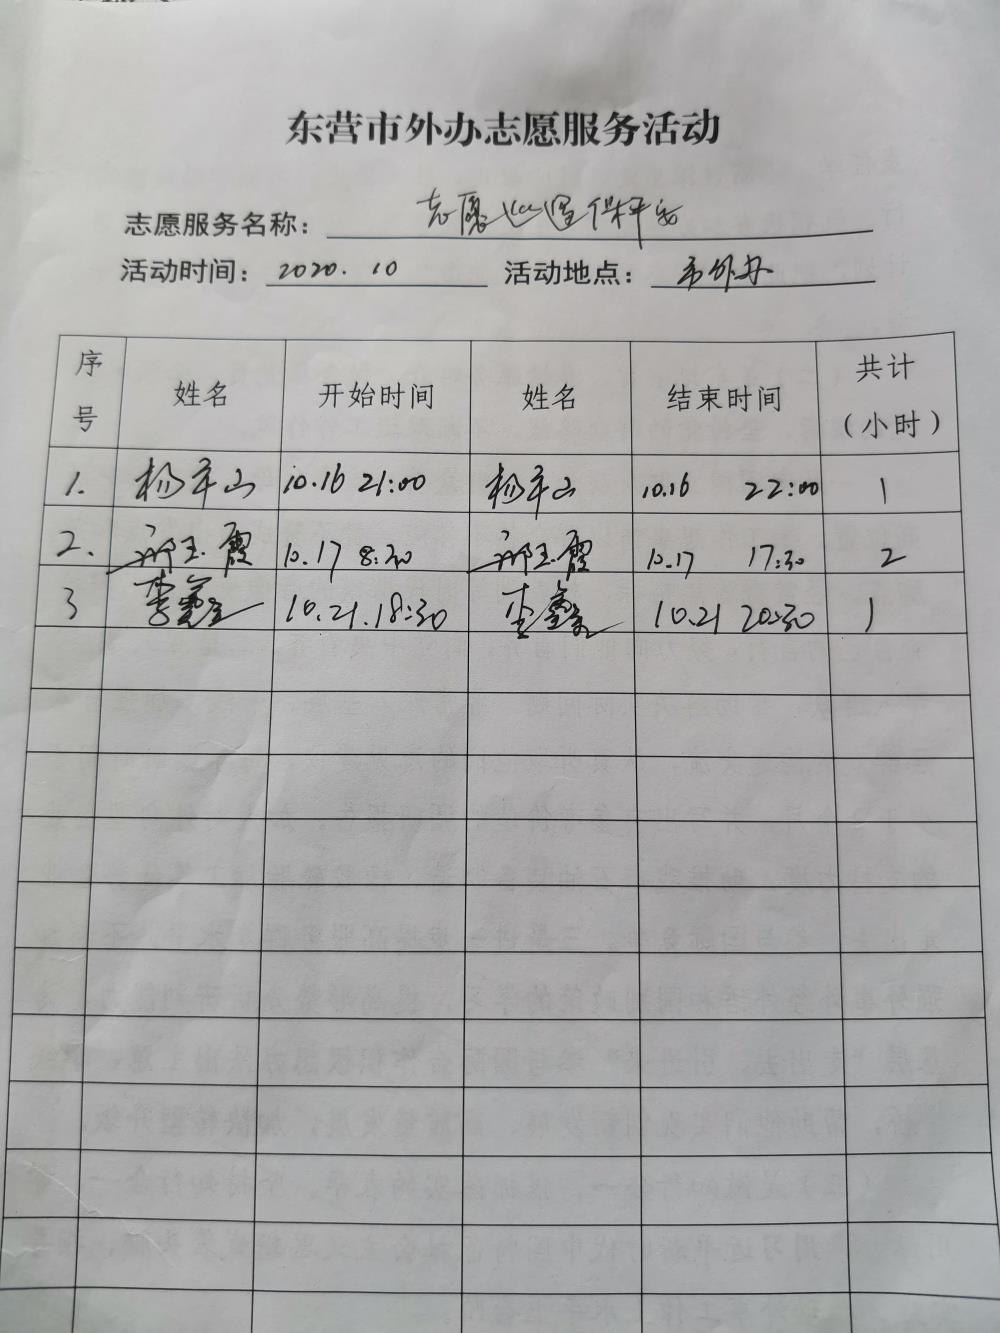 东营市外办志愿服务活动
志愿服务名称：志愿巡逻保平安
活动时间：2020.10 活动地点：市外办
序号 姓名 开始时间 姓名 结束时间 共计（小时）
1. 杨平山 10.16 21:00 杨平山 10.16 22:00 1
2. 玉霞 10.17 8:30 玉霞 10.17 17:30 2
3 李鑫 10.21.18:30 李鑫 10.21 20:30 1